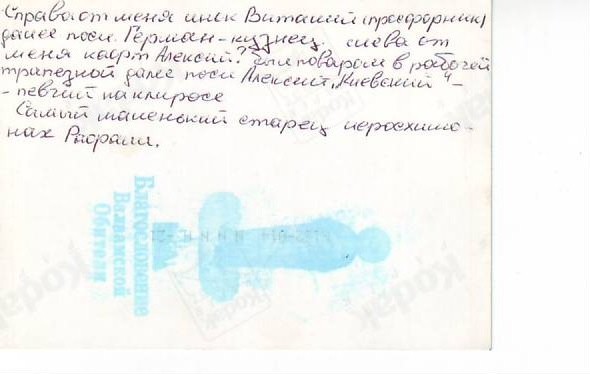 Справа от меня инок Виталий (просфорник)
далее посл. Герман - кузнец, слева от
меня Алексий? был поваром в рабочей
трапезной далее посл Алексий "Киевский" -
- певчий на клиросе
Самый маленький старец иеросхимо-
нах Рафаил.
Благословение
Валаамской
Обители
Kodak
Kodak
Kodak